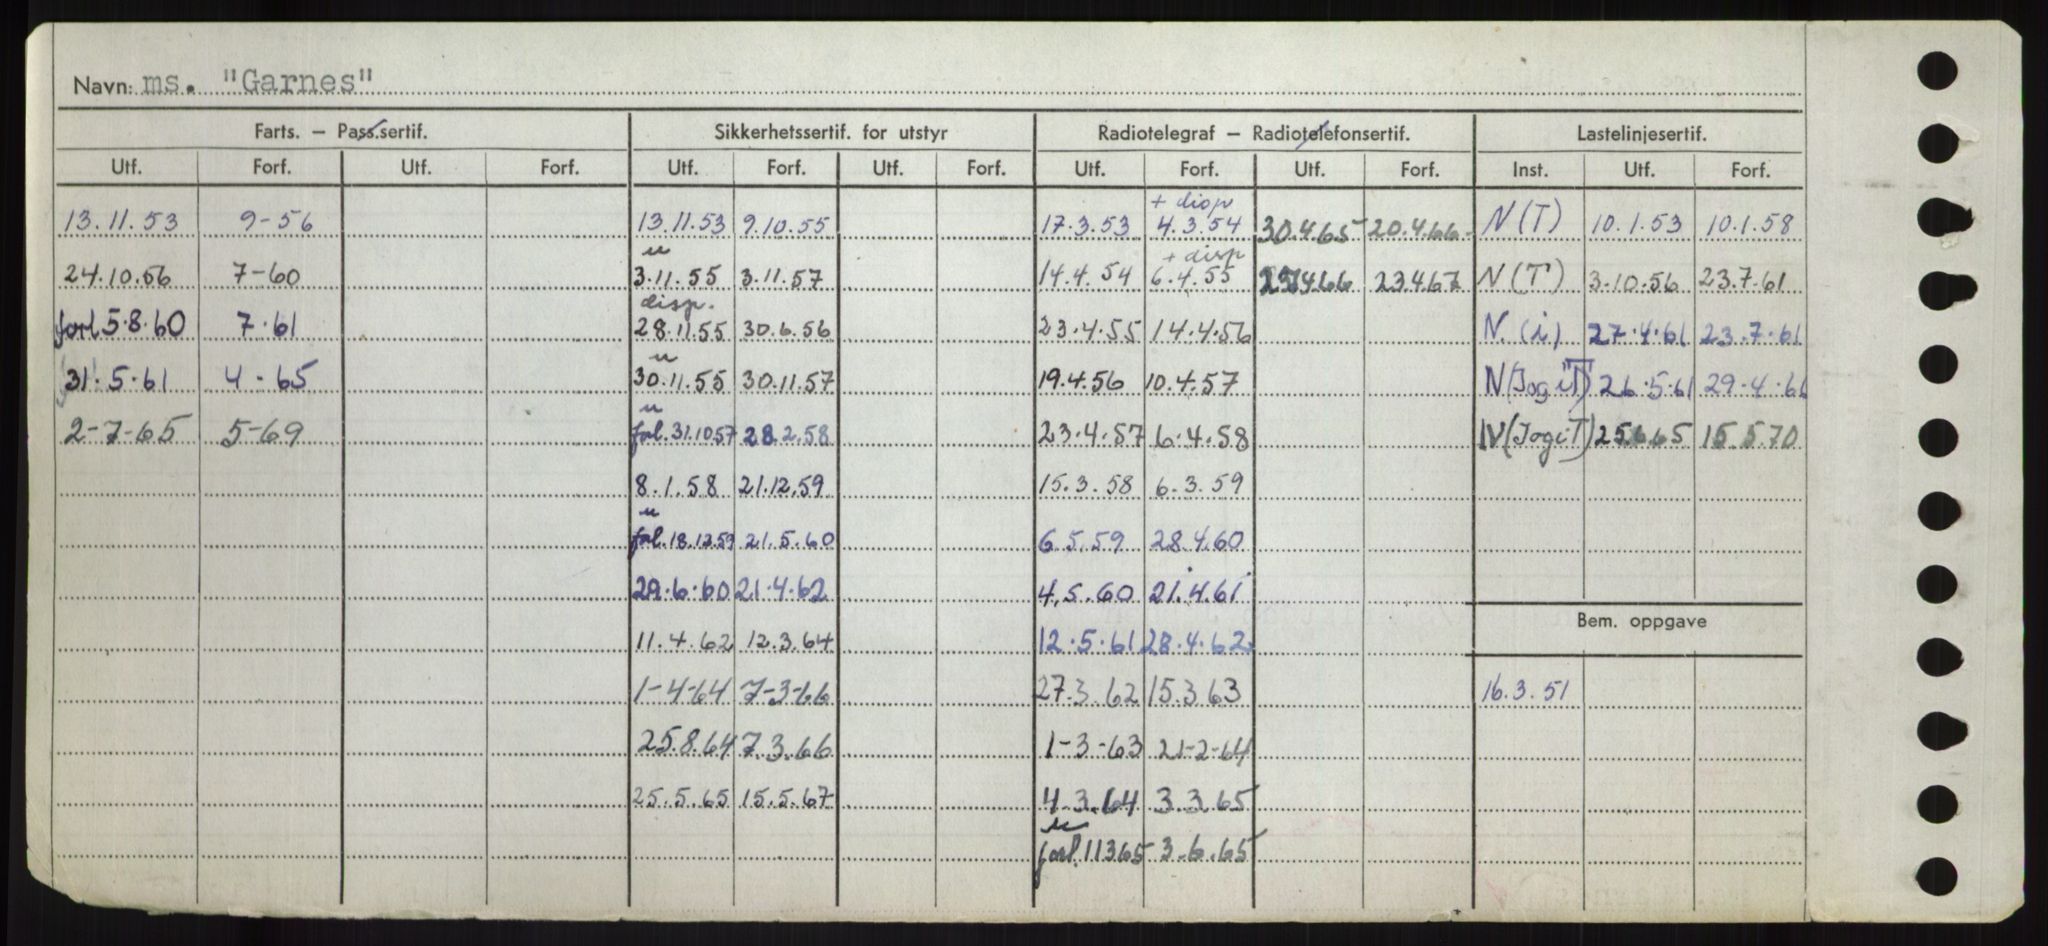 Navn: ms. "Garnes"
Farts. – Pass.sertif. Sikkerhetssertif. for utstyr Radiotelegraf – Radiotelefonsertif. Lastelinjesertif.
Utf. Forf. Utf. Forf. Utf. Forf. Utf. Forf. Utf. Forf. Utf. Forf. Inst. Utf. Forf.
+ disp
13.11.53 9-56 13.11.53 9.10.55 17.3.53 4.3.54 30.4.65 20.4.66 N(T) 10.1.53 10.1.58
u + disp
24.10.56 7-60 3.11.55 3.11.57 14.4.54 6.4.55 23.4.67 N(T) 3.10.56 23.7.61
disp.
forl 5.8.60 7.61 28.11.55 30.6.56 23.4.55 14.4.56 N.(i) 27.4.61 23.7.61
u
31.5.61 4.65 30.11.55 30.11.57 19.4.56 10.4.57 N(JogiT) 26.5.61 29.4.66
u
2-7-65 5-69 forl. 31.10.57 28.2.58 23.4.57 6.4.58 N(JogiT) 25.6.65 15.5.70
8.1.58 21.12.59 15.3.58 6.3.59
u
forl. 18.12.59 21.5.60 6.5.59 28.4.60
29.6.60 21.4.62 4.5.60 21.4.61
Bem. oppgave
11.4.62 12.3.64 12.5.61 28.4.62
1-4-64 7-3-66 27.3.62 15.3.63 16.3.51
25.8.64 7.3.66 1-3-63 21-2-64
25.5.65 15.5.67 4-3.64 3.3.65
u
forl. 11365 3.6.65